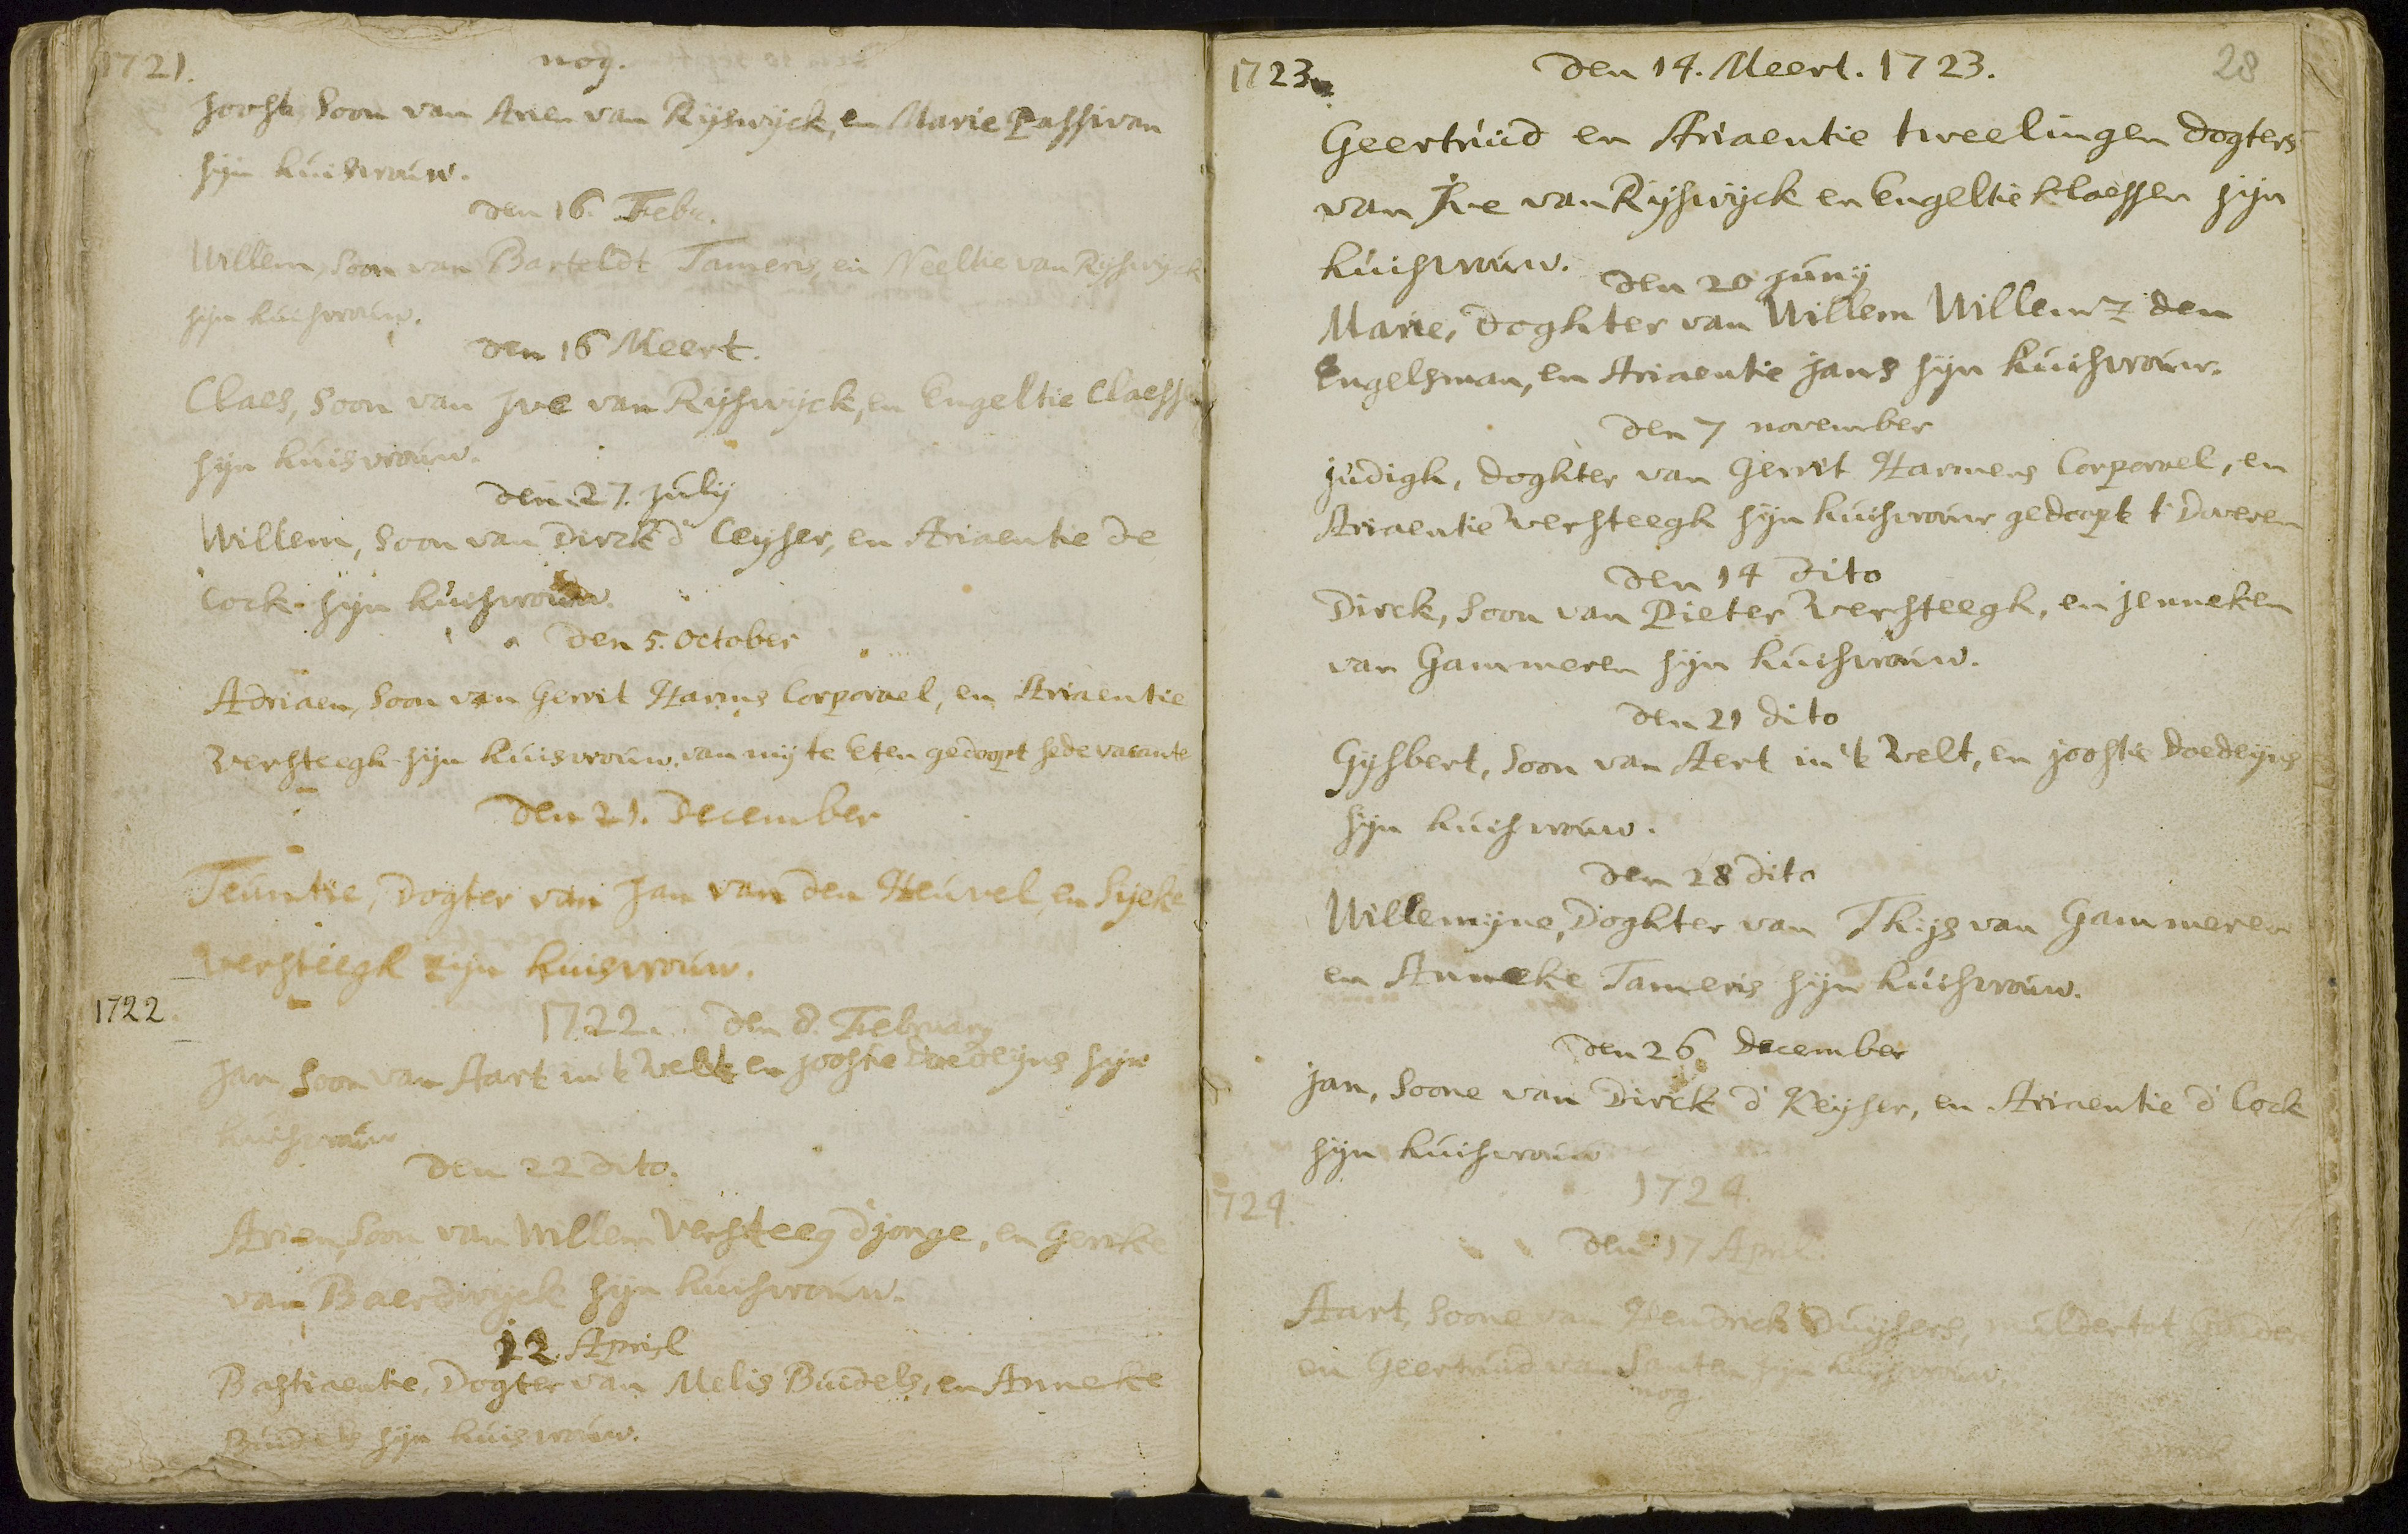 1721.
nog.
Joost, Soon van Arien van Rijswijck, en Marie Passivan
sijn huisvrouw.
den 16. Febr.
Willem, Soon van Barteldt Tameris, en Neeltie van Rijswijck
sijn huisvrouw.
den 16 Meert.
Claes, Soon van Jve van Rijswijck, en Engeltie Claesse
sijn huisvrouw.
den 27. July
Willem, Soon van Dirck d' Ceyser, en Ariaentie de
Cock sijn huisvrouw.
den 5. October
Adriaen, Soon van Gerrit Harms Corporael, en Ariaentie
Versteegh sijn huisvrouw, van mij te Eten gedoopt sede vacante
den 21. December
Teuntie, Dogter van Jan van den Heuvel, en Sijeke
Versteegh zijn huisvrouw.
1722.
1722. den 8. February
Jan Soon van Aart in 't Velt en Joostie Doedeyns sijn
huisvrouw
den 22 dito.
Arien, Soon van Willem Versteeg d' jonge, en Gerrike
van Baerdwyck sijn huisvrouw.
12. April
Bastiaentie, Dogter van Melis Buidels, en Anneke
Buidels sijn huisvrouw.
28
1723.
den 14. Meert. 1723.
Geertruid en Ariaentie tweelingen dogters
van Jve van Rijswijck en Engeltie Klaessen sijn
huisvrouw.
den 20 Juny
Marie, Doghter van Willem Willemz den
Engelsman, en Ariaentie Jans sijn huisvrouw.
den 7 november
Judigh, doghter van Gerrit Harmens Corporael, en
Ariaentie Versteegh sijn huisvrouw gedoopt t' Doveren
den 14 dito
Dirck, Soon van Pieter Versteegh, en Jenneken
van Gammeren sijn huisvrouw.
den 21 dito
Gysbert, Soon van Aert in 't Velt, en Joostie Doedeyns
sijn huisvrouw.
den 28 dito
Willemyne, Doghter van Thijs van Gammeren
en Anneke Tameris sijn huisvrouw.
den 26 December
Jan, Soone van Dirck d' Keyser, en Ariaentie d' Cock
sijn huisvrouw
1724.
1724.
den 17 April.
Aart, Soone van Hendrick Duysers, mulder tot
en Geertruid van Santen sijn huysvrouw.
nog